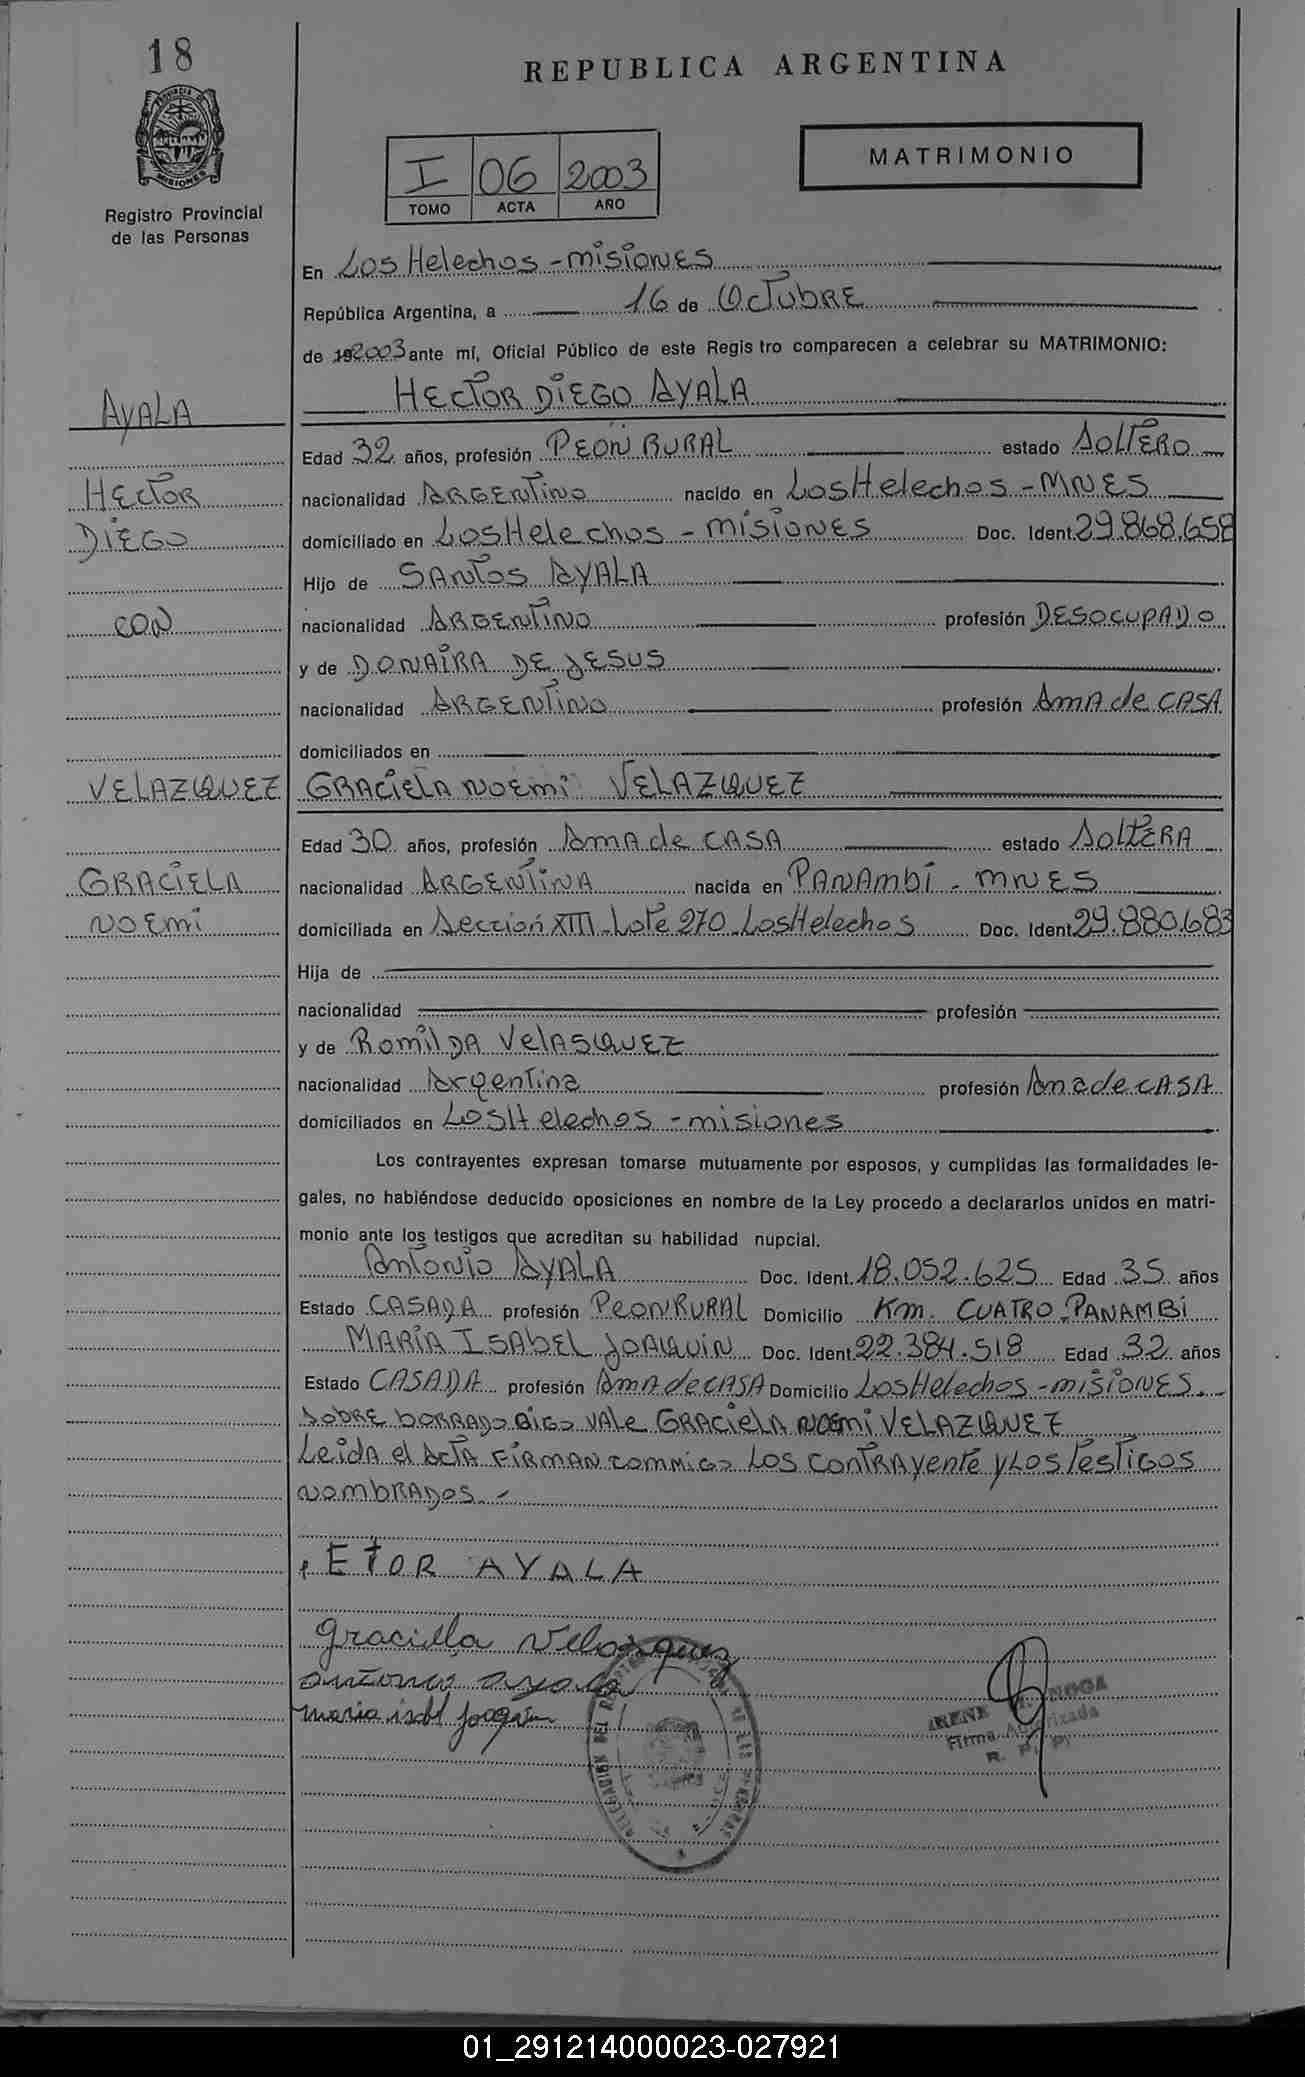 18
REPUBLICA ARGENTINA
PROVINCIA DE MISIONES
Registro Provincial
de las Personas
I 06 2003
TOMO ACTA AÑO
MATRIMONIO
En Los Helechos - misiones
República Argentina, a 16 de Octubre
de 192003 ante mí, Oficial Público de este Registro comparecen a celebrar su MATRIMONIO:
AYALA
HECTOR DIEGO AYALA
Edad 32 años, profesión PEON RURAL estado SOLTERO
HECTOR
nacionalidad ARGENTINO nacido en Los Helechos - MNES
DIEGO
domiciliado en Los Helechos - misiones Doc. Ident. 29.868.658
Hijo de SANTOS AYALA
CON
nacionalidad ARGENTINO profesión DESOCUPADO
y de DONAIRA DE JESUS
nacionalidad ARGENTINO profesión AMA de CASA
domiciliados en
VELAZQUEZ
GRACIELA NOEMI VELAZQUEZ
Edad 30 años, profesión AMA de CASA estado SOLTERA
GRACIELA
nacionalidad ARGENTINA nacida en PANAMBI - MNES
NOEMI
domiciliada en Sección XIII - Lote 270 - Los Helechos Doc. Ident. 29.880.683
Hija de
nacionalidad profesión
y de ROMILDA VELASQUEZ
nacionalidad Argentina profesión Ama de CASA
domiciliados en Los Helechos - misiones
Los contrayentes expresan tomarse mutuamente por esposos, y cumplidas las formalidades le-
gales, no habiéndose deducido oposiciones en nombre de la Ley procedo a declararlos unidos en matri-
monio ante los testigos que acreditan su habilidad nupcial.
Antonio AYALA Doc. Ident. 18.052.625 Edad 35 años
Estado CASADA profesión PEON RURAL Domicilio Km. CUATRO - PANAMBI
MARÍA ISABEL JOAQUIN Doc. Ident. 22.384.518 Edad 32 años
Estado CASADA profesión AMA de CASA Domicilio Los Helechos - misiones.-
SOBRE BORRADO DIGO VALE GRACIELA NOEMI VELAZQUEZ
Leida el ACTA FIRMAN COMMIGO LOS CONTRAYENTE y LOS TESTIGOS
NOMBRADOS.-
ETOR AYALA
graciella Velazquez
antonio ayala
maria isabl joaquin
DELEGACION DEL REGISTRO PROVINCIAL DE LAS PERSONAS
IRENE
Firma Autorizada
R. P. P.
01_291214000023-027921